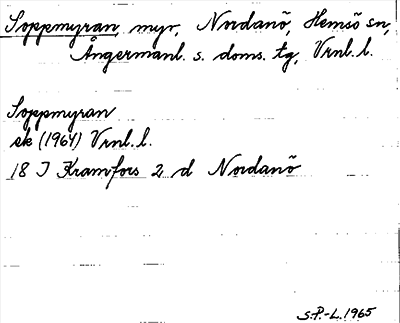 Soppmyran, myr, Nordanö, Hemsö sn,
Ångermanl. s. doms. tg, Vrnl. l.
Soppmyran
sk (1964) Vrnl. l.
18 I Kramfors 2 d Nordanö
S.P.-L. 1965